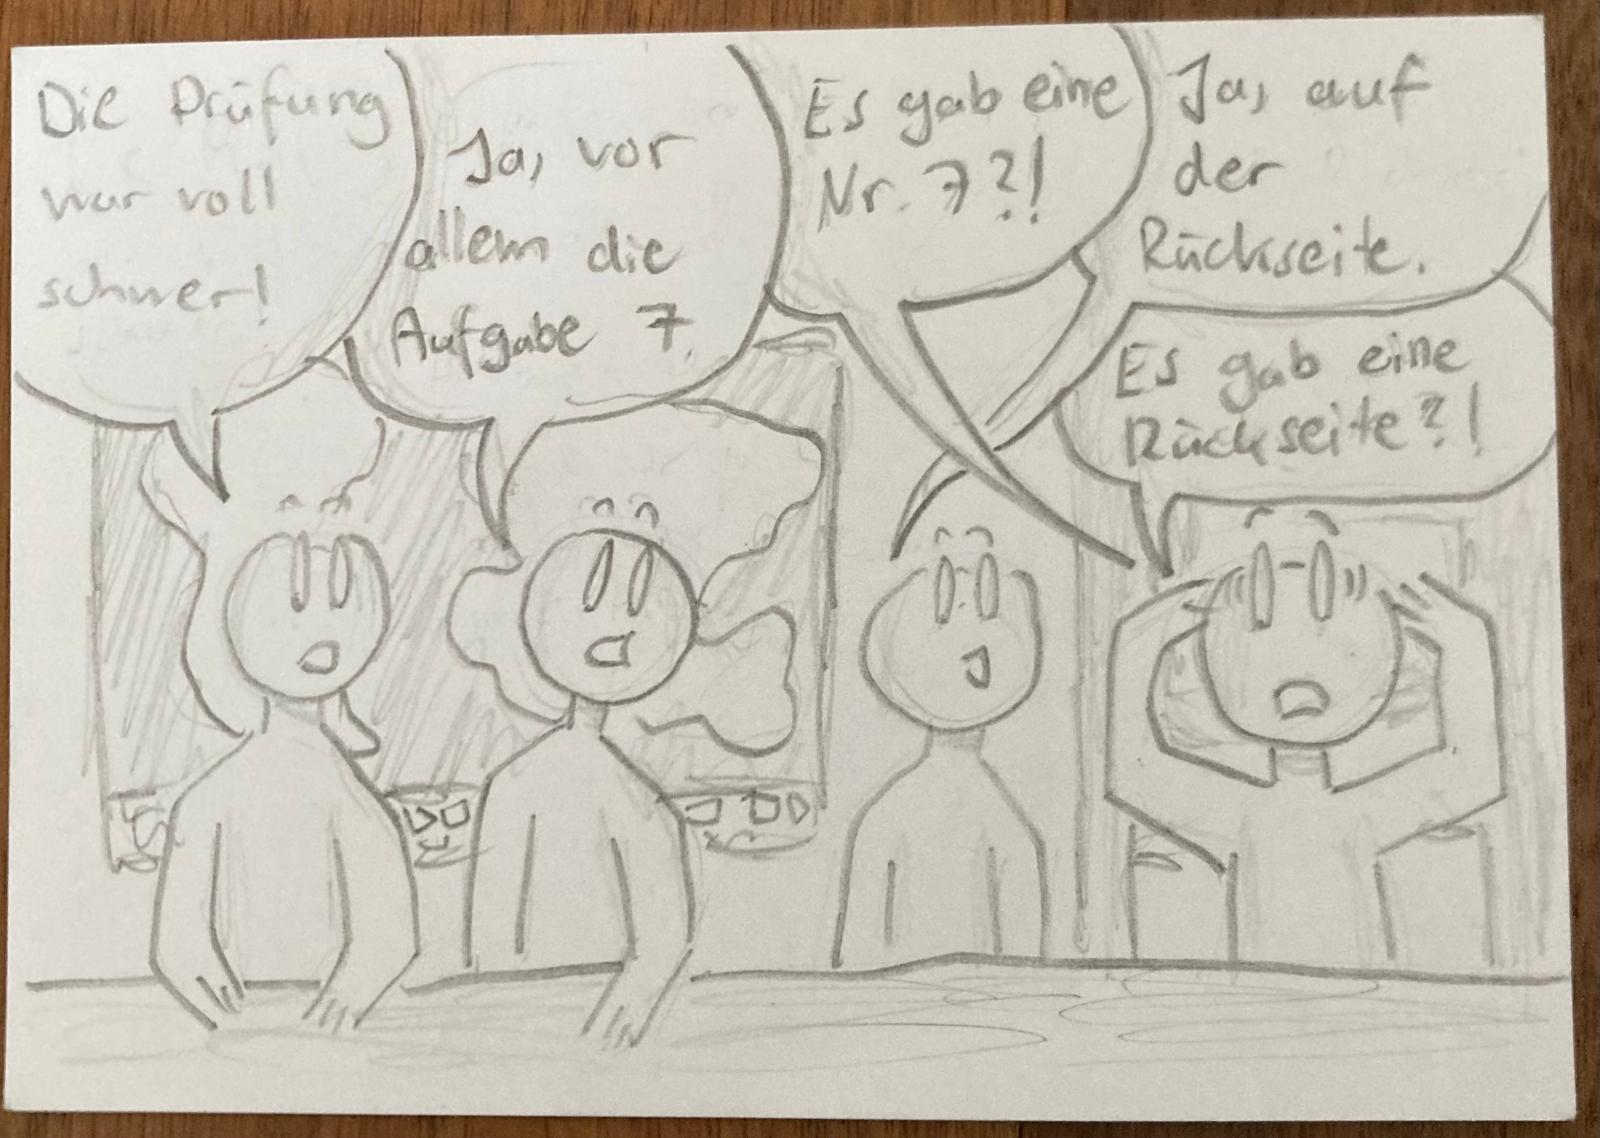 Die Prüfung
war voll
schwer!
Ja, vor
allem die
Aufgabe 7.
Es gab eine
Nr. 7?!
Ja, auf
der
Rückseite.
Es gab eine
Rückseite?!